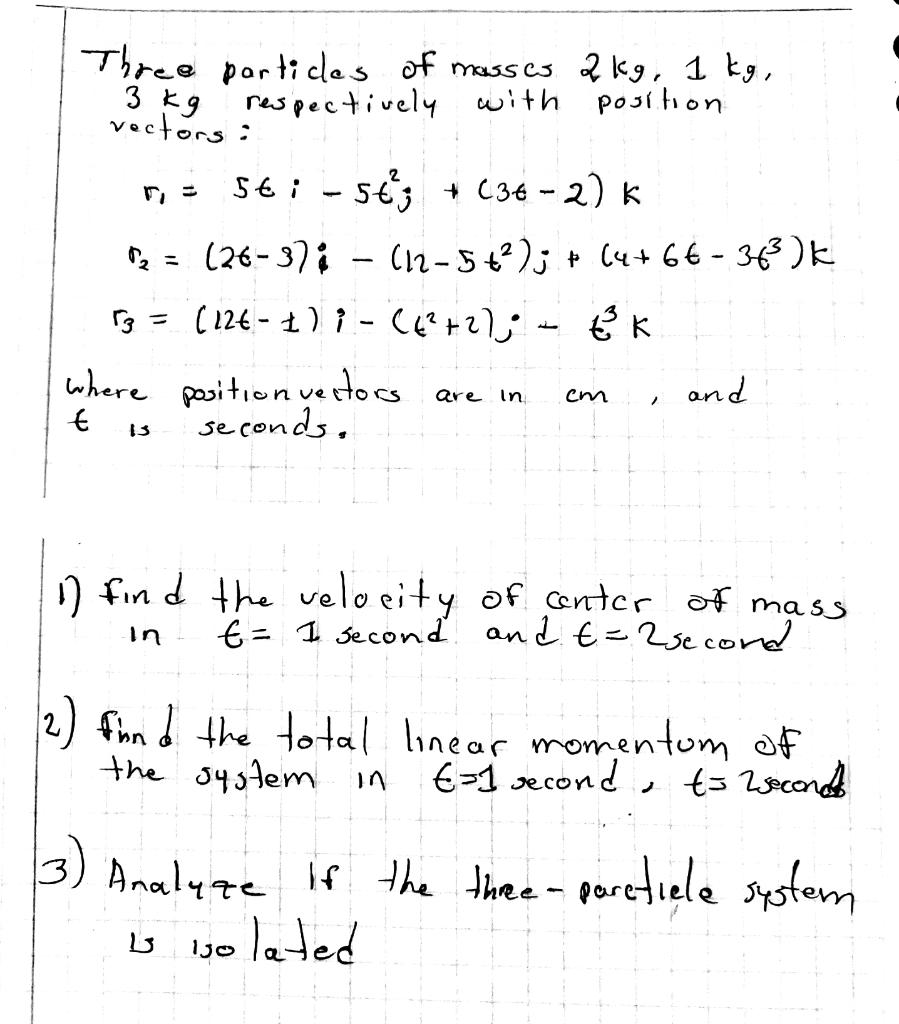 Three particles of masses 2 kg, 1 kg,
3 kg respectively with position
vectors:
r₁ = 5t i - 5t²j + (3t - 2) k
r₂ = (2t-3) i - (12-5t²)j + (4+6t-3t³)k
r₃ = (12t-1) i - (t²+2)j - t³ k
where position vectors are in cm, and
t is seconds.
1) find the velocity of center of mass
in t = 1 second and t = 2 second
2) find the total linear momentum of
the system in t=1 second, t=2 seconds
3) Analyze If the three-particle system
is isolated